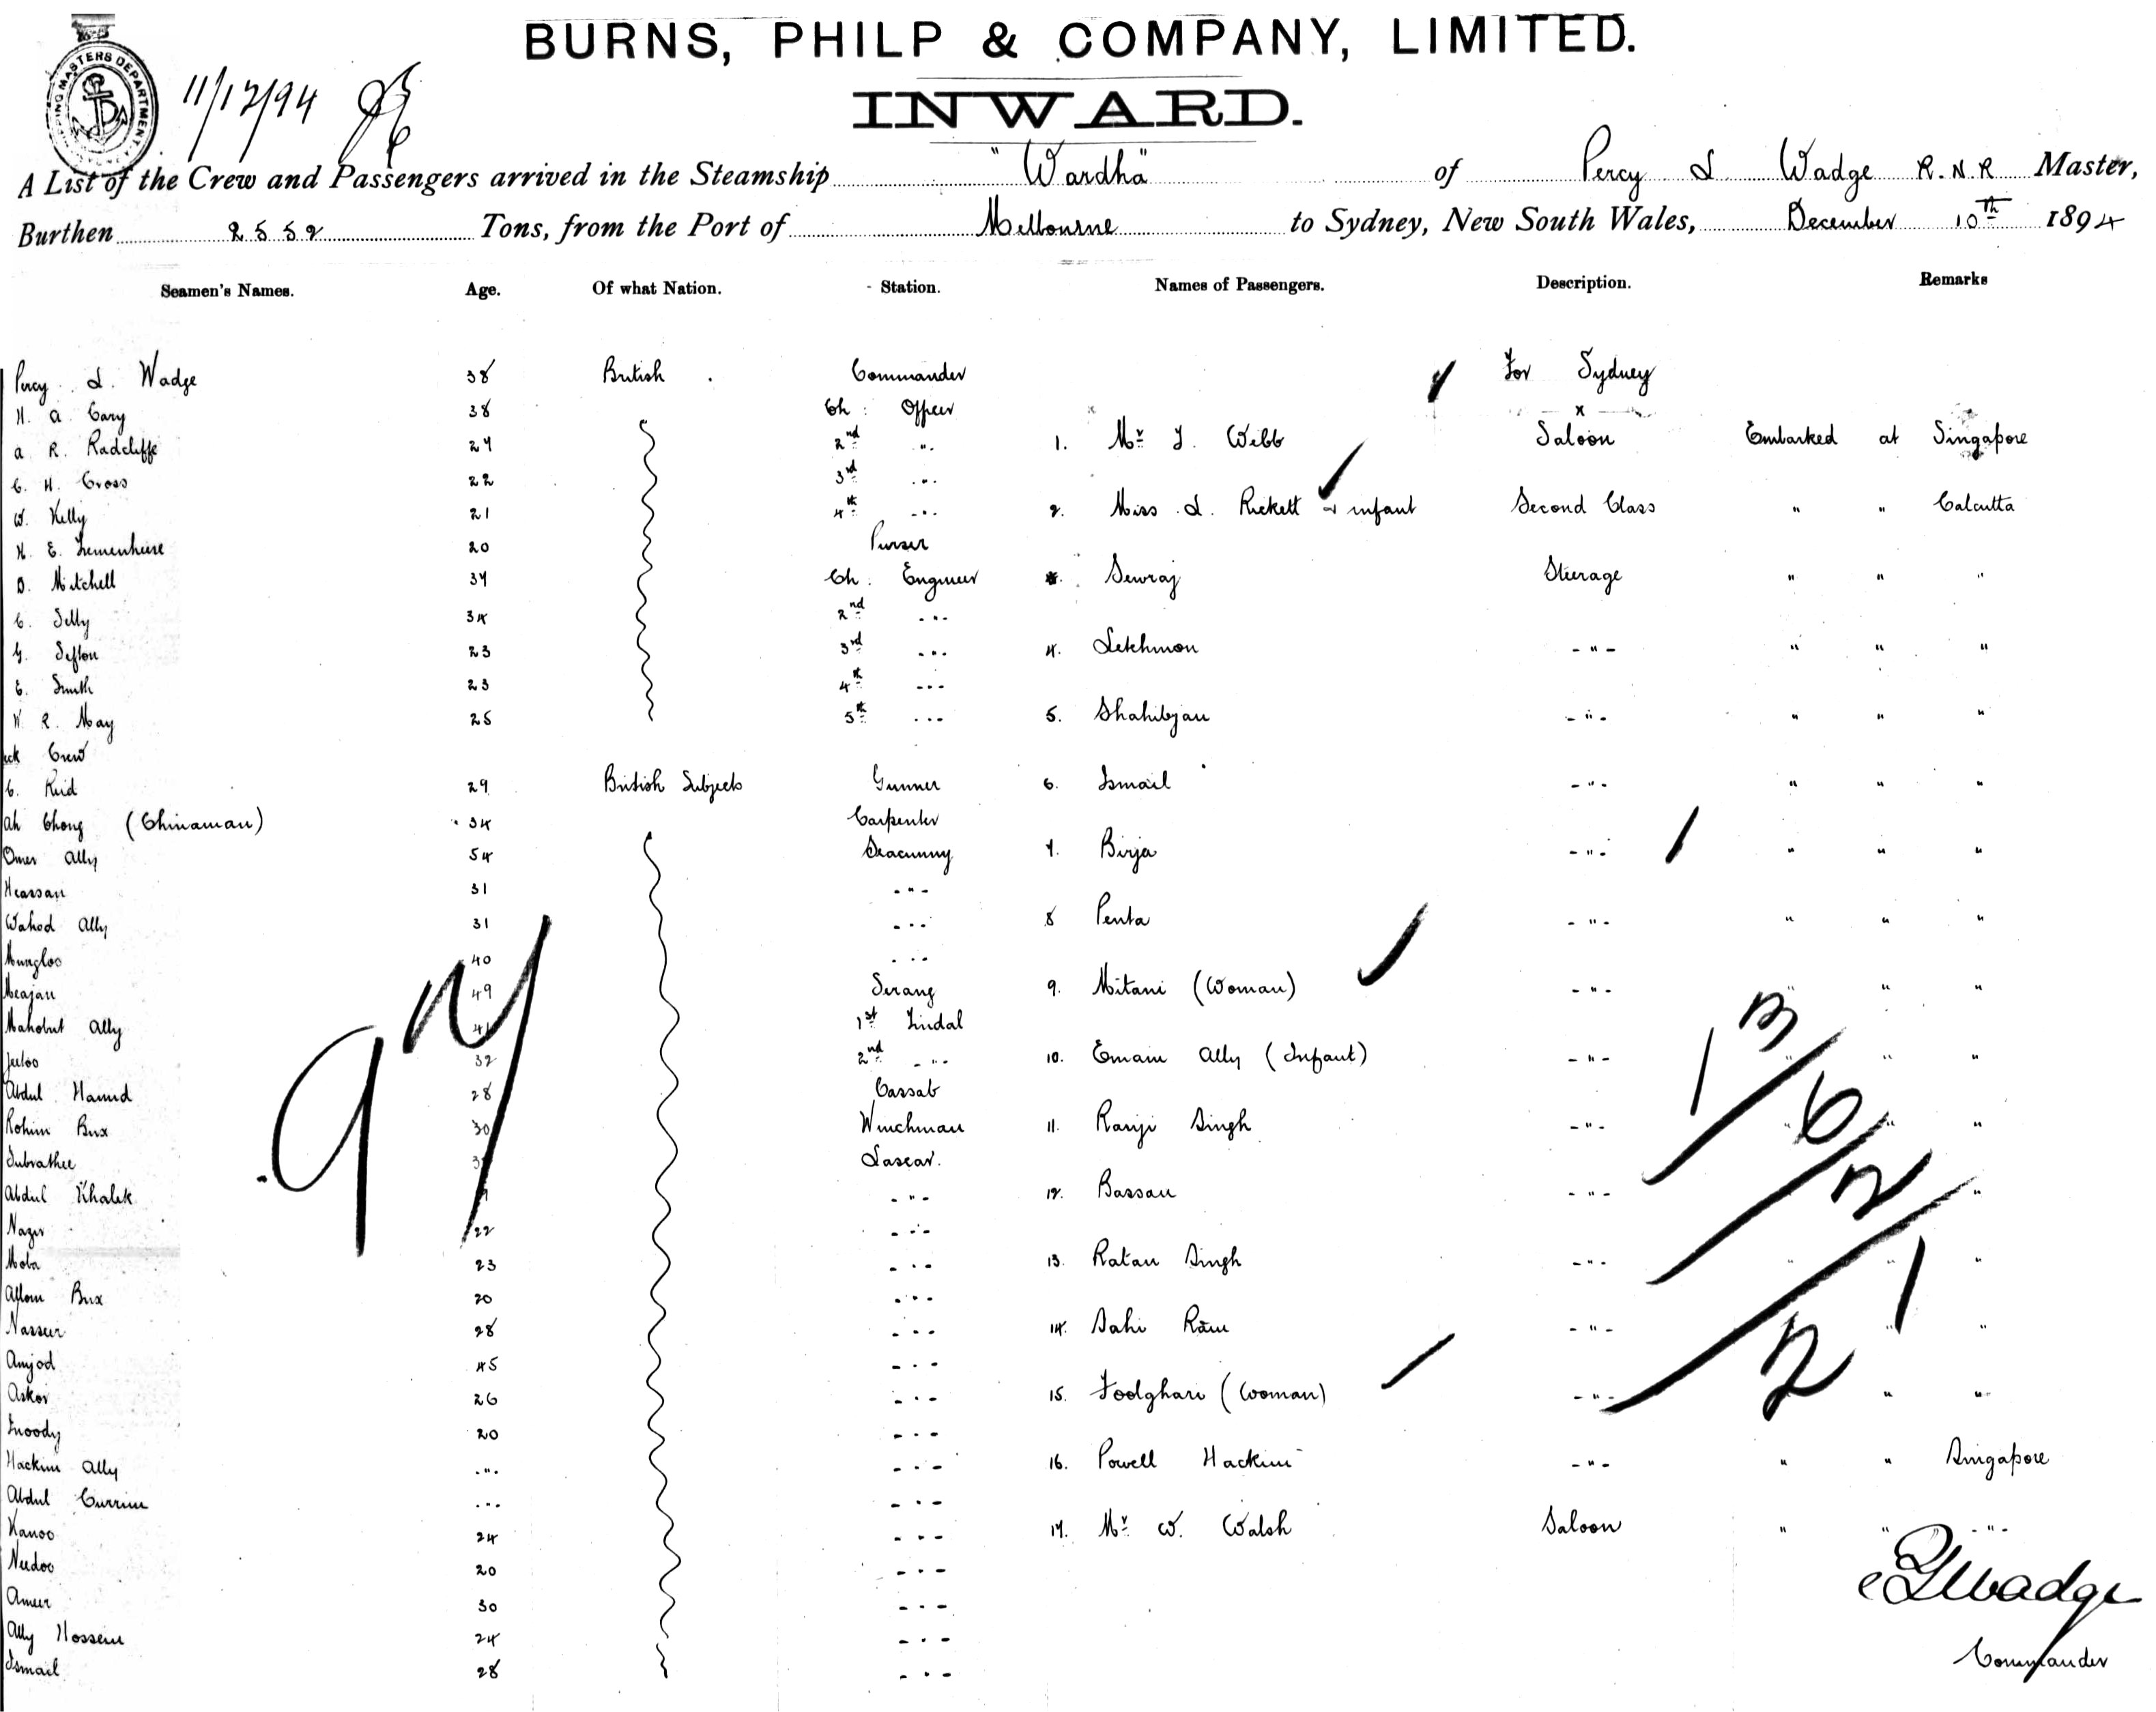 BURNS, PHILP & COMPANY, LIMITED.
SHIPPING MASTERS DEPARTMENT
11/12/94
INWARD.
A List of the Crew and Passengers arrived in the Steamship "Wardha" of Percy L Wadge R.N.R Master,
Burthen 2552 Tons, from the Port of Melbourne to Sydney, New South Wales, December 10th 1894
Seamen's Names. Age. Of what Nation. Station. Names of Passengers. Description. Remarks
Percy L. Wadge 38 British Commander For Sydney
H. A. Cary 38 Ch: Officer x
A R. Radcliffe 27 2nd " 1. Mr J. Webb Saloon Embarked at Singapore
C. H. Cross 22 3rd "
W. Kelly 21 4th " 2. Miss L. Rickett & infant Second Class " " Calcutta
H. E. Tremenheere 20 Purser
D. Mitchell 37 Ch: Engineer Sewraj Steerage " " "
C. Selly 34 2nd "
G. Sefton 23 3rd " 4. Letchmon " " " "
E. Smith 23 4th "
W. R. May 25 5th " 5. Shahibjan " " " "
eck Crew
C. Reid 29 British Subjects Gunner 6. Ismail " " " "
Ah Chong (Chinaman) 34 Carpenter
Omer Ally 54 Seacunny 7. Birja " " " "
Heassan 31 "
Wahod Ally 31 " 8 Penta " " " "
Mungloo 40 "
Meajan 49 Serang 9. Mitani (Woman) " " " "
Mahobut Ally 41 1st Tindal
Jeeloo 32 2nd " 10. Emam Ally (Infant) " " "
Abdul Hamid 28 Cassab
Rohim Bux 30 Winchman 11. Ranji Singh " " "
Subrathee Lascar.
Abdul Khalek " 12. Bassau " "
Nazir 22 "
Moba 23 " 13. Ratan Singh " " "
Allom Bux 20 "
Nasseer 28 " 14. Sahi Ram " "
Amjod 45 "
Asker 26 " 15. Foolghari (Woman) " " "
Enoody 20 "
Hackim Ally " " 16. Powell Hackim " " " Singapore
Abdul Currim " "
Kanoo 24 " 17. Mr W. Walsh Saloon " " "
Needoo 20 "
Ameer 30 "
Ally Hossein 24 "
Ismail 28 "
97
1
3/
6/
2/
1
2
PLWadge
Commander